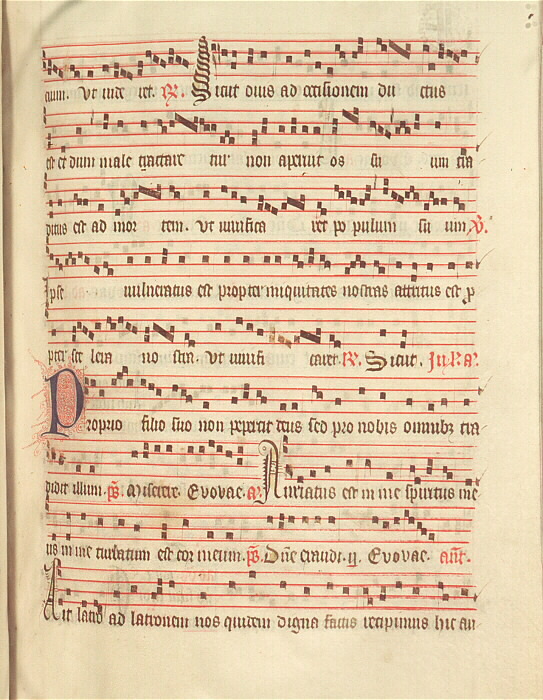 cium. Ut vivi vet. R. Sicut ovis ad occisionem du ctus
est et dum male tractare tur non aperuit os su um tra
ditus est ad mor tem. Ut vivifica ret po pulum su um. V.
Ipse vulneratus est propter iniquitates nostras attritus est p
pter sce lera no stra. Ut vivifi caret. R. Sicut. In .
Proprio filio suo non pepercit deus sed pro nobis omnibz tra
didit illum. ps. Miserere. Evovae. a. Anxiatus est in me spiritus me
us in me turbatum est cor meum. ps. Dne exaudi. ij. Evovae. ant.
Ait latro ad latronem nos quidem digna factis recipimus hic au